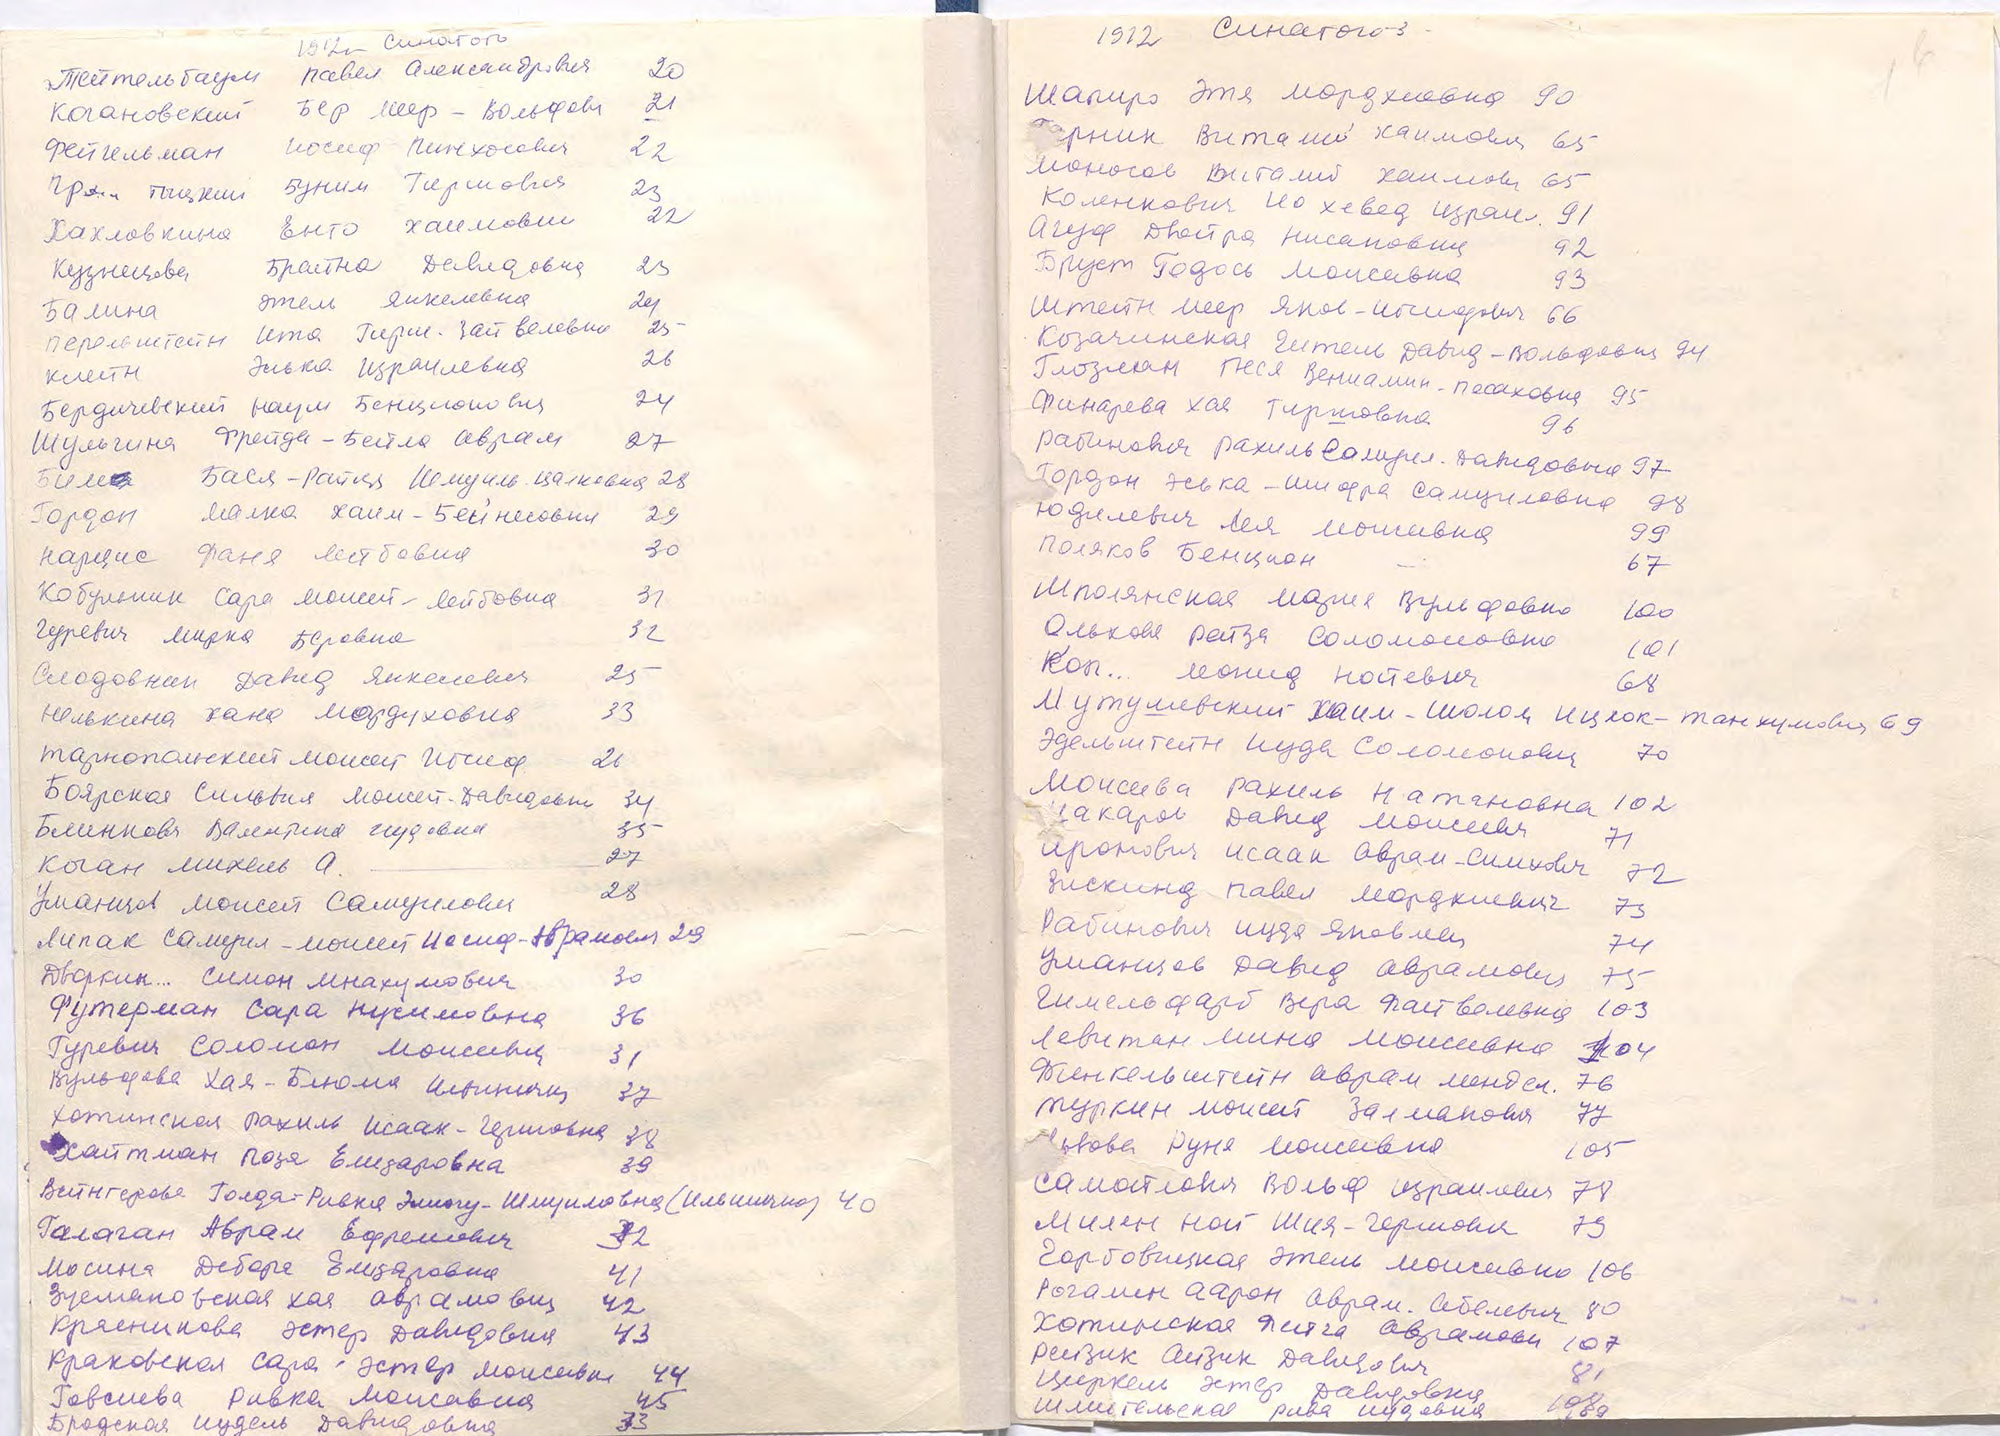 1912 Синагога
Тейтельбаум Павел Александрович 20
Когановский Бер Меер - Вольфович 21
Фейгельман Иосиф Пинхосович 22
Буним Гиршович 23
Хахловкина Енто Хаимовна 22
Кузнецова Брайна Давидовна 23
Балина Этель Янкелевна 24
Перельштейн Ита Гирш-Зайвелевна 25
Клейн Элька Израилевна 26
Бердичевский Наум Бенционович 24
Шульгина Фрейда-Бейла Аврам 27
Бася-Райця Шмуиль-Цалковна 28
Гордон Малка Хаим-Бейнесовна 29
Нарцис Фаня Лейбовна 30
Кобульник Сара Моисей-Лейбовна 31
Гуревич Мирка Беровна 32
Слодовник Давид Янкелевич 25
Нелькина Хана Мордуховна 33
Тарнопольский Моисей Иосиф 26
Боярская Сильвия Моисей-Давидовна 34
Блинкова Валентина Иудовна 35
Коган Михель А. 27
Уманцов Моисей Самуилович 28
Липак Самуил-Моисей Иосиф-Аврамович 29
Дворкин... Симон Мнахумович 30
Футерман Сара Нусимовна 36
Гуревич Соломон Моисеевич 31
Вульфова Хая-Блюма Ильинична 37
Хотинская Рахиль Исаак-Гершовна 38
Хайтман Роза Елизаровна 39
Вейнгерова Голда-Ривка Элиогу-Шмуиловна (Ильинична) 40
Галаган Аврам Ефремович 32
Мосина Дебора Елизаровна 41
Зусмановская Хая Аврамовна 42
Красникова Эстер Давидовна 43
Краковская Сара-Эстер Моисеевна 44
Говсиева Ривка Моисавна 45
Бродская Иудель Давидовна 33
1912 Синагога
Шапиро Этя Мордховна 90
Виталий Хаимович 65
Моносов Виталий Хаимович 65
Коленкович Иохевед Израил. 91
Агуф Двойра Нисановна 92
Бруст Годось Моисеевна 93
Штейн Меер Янов-Иосифович 66
Козачинская Гитель Давид-Вольфовна 94
Глозман Песя Вениамин-Песаховна 95
Финарева Хая Гиршовна 96
Рабинович Рахиль Самуил. Давидовна 97
Гордон Эська-Шифра Самуиловна 98
Юдилевич Лея Моисеевна 99
Поляков Бенцион - 67
Шполянская Мария Вульфовна 100
Олькова Рейза Соломоновна 101
Коп... Леонид Нотевич 68
Мутушевский Хаим-Шолом Ицхок-Танхумович 69
Эдельштейн Иуда Соломонович 70
Моисеева Рахиль Натановна 102
Давид Моисеевич 71
Аронович Исаак Аврам-Симхович 72
Зискинд Павел Мордкиевич 73
Рабинович Иуда Яковлев 74
Уманцов Давид Аврамович 75
Гимельфарб Вера Файвелевна 103
Левитан Мина Моисеевна 104
Финкельштейн Аврам Мендел. 76
Туркин Моисей Залманович 77
Львова Руня Моисеевна 105
Самойлович Вольф Израилевич 78
Милен Ной Шия-Гершович 79
Горбовицкая Этель Моисеевна 106
Рогалин Аарон Аврам. Абелевич 80
Хотинская Пейга Аврамовн 107
Рейзик Айзик Давидович 81
Циркель Эстер Давидовна 108
Рива Иудовна 109